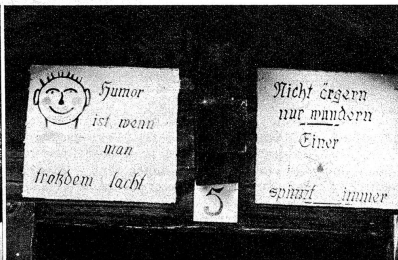 Humor
ist wenn
man
trotzdem lacht
5
Nicht ärgern
nur wundern
Einer
spinnt immer